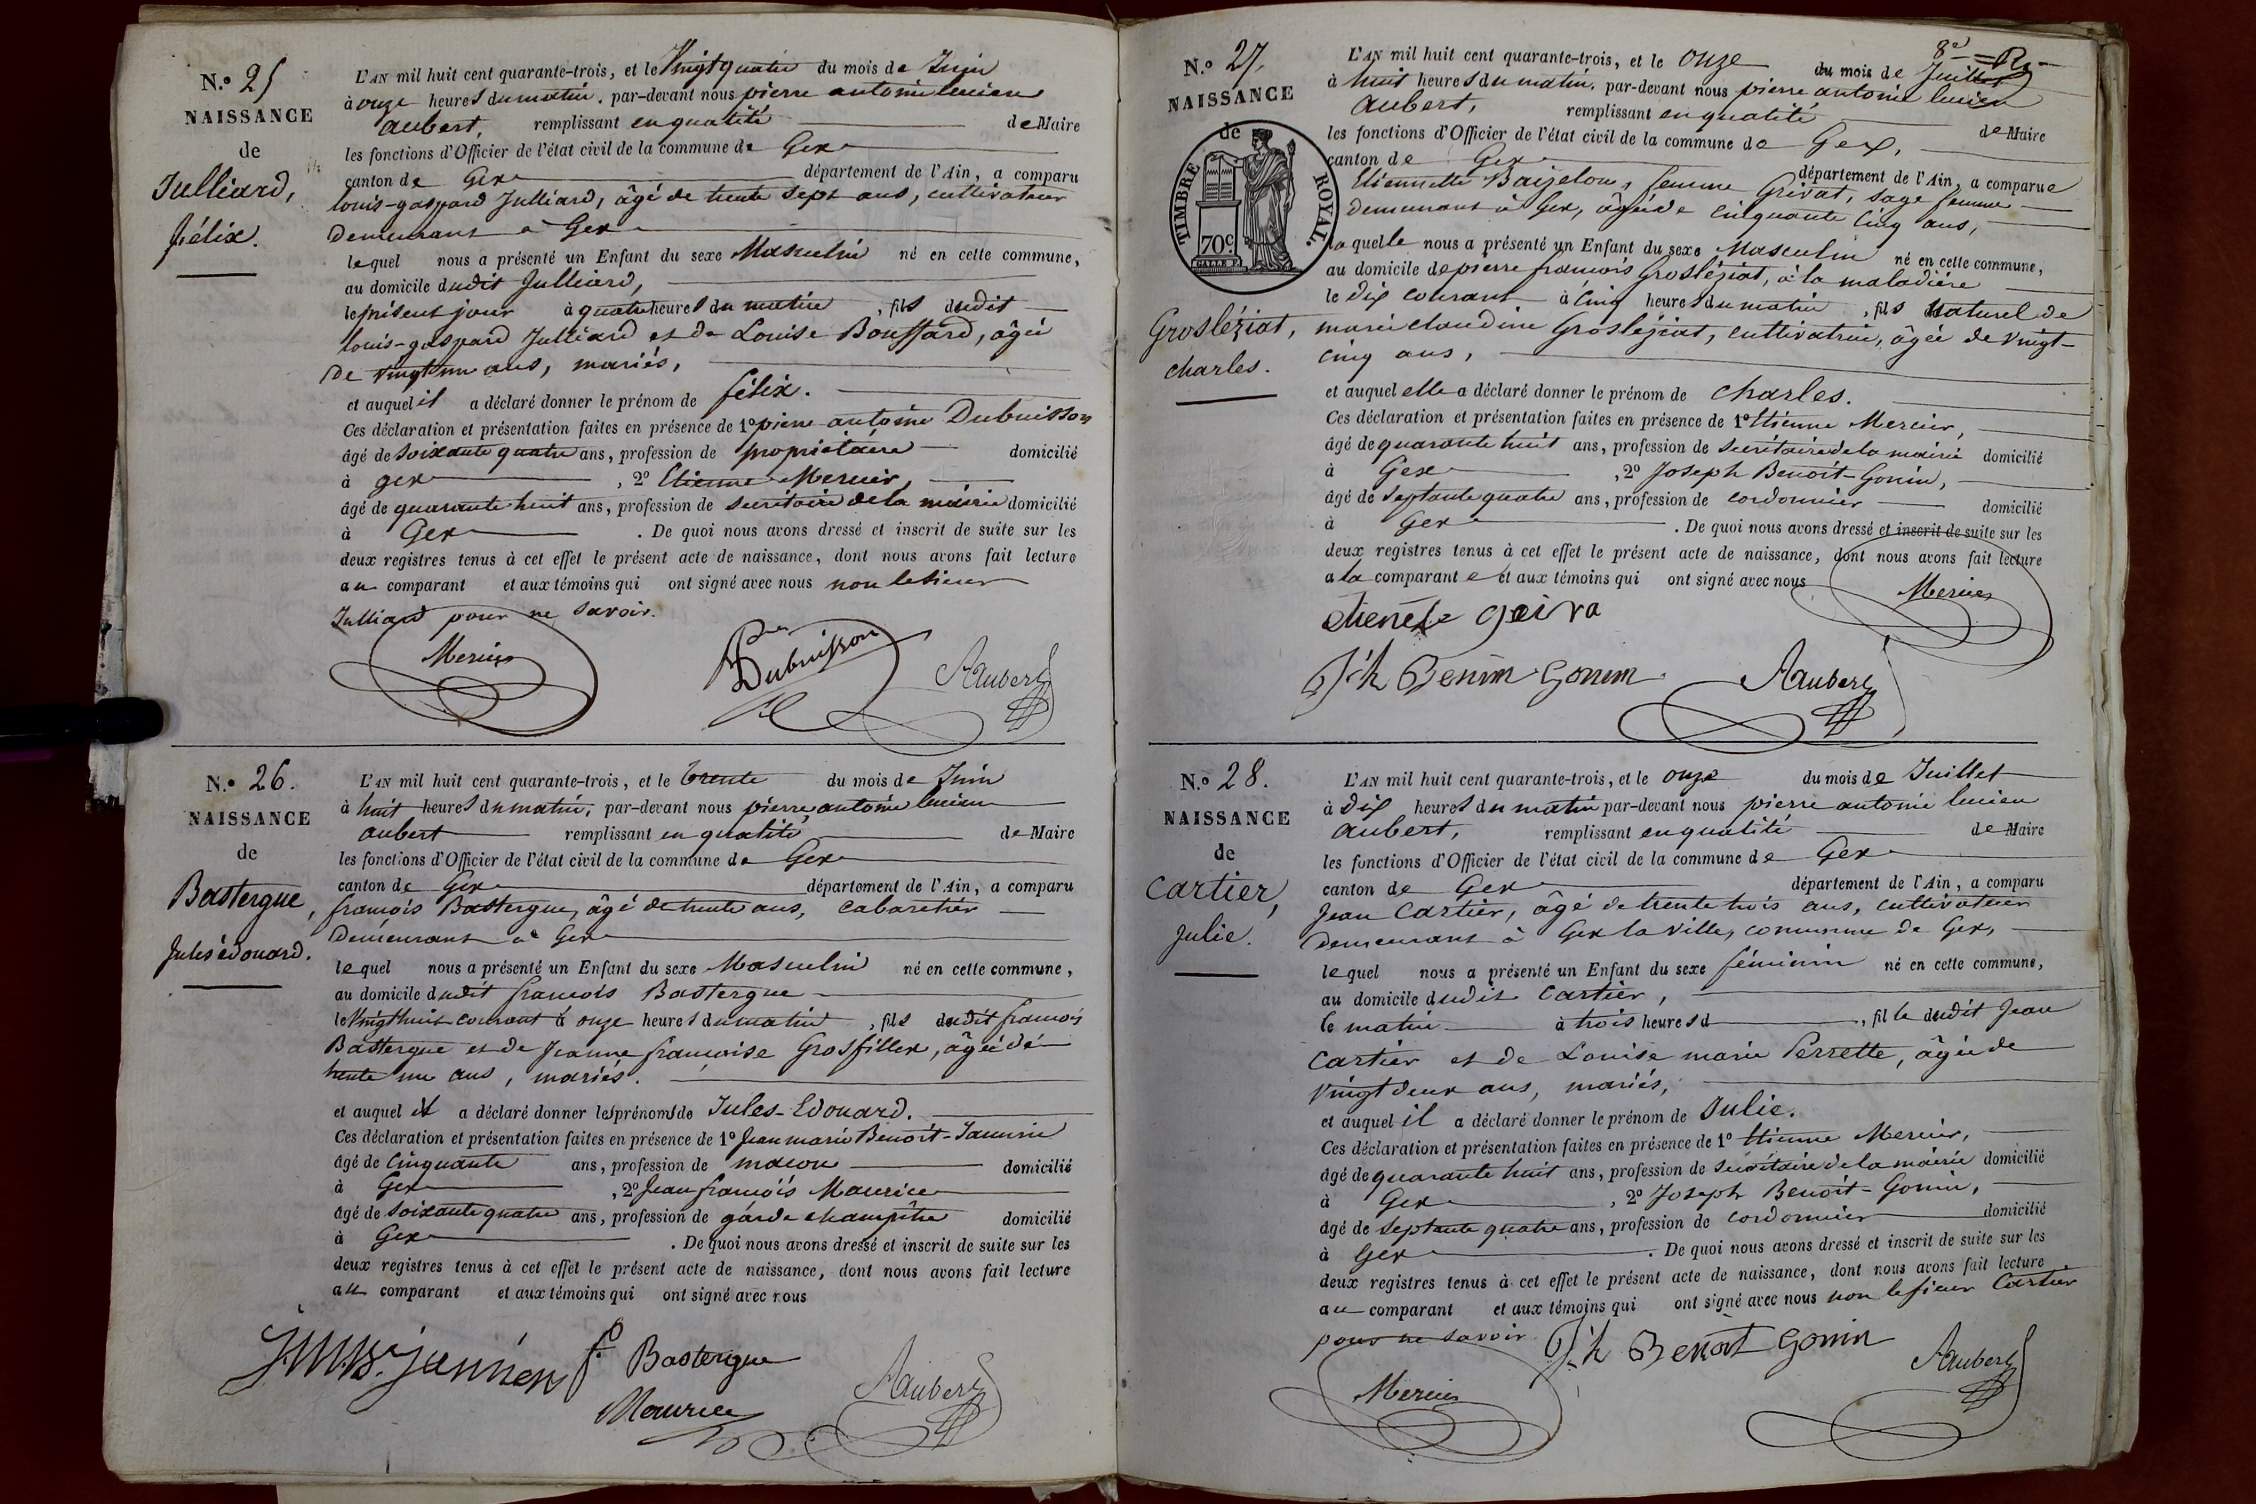 N.o 25
NAISSANCE
de
Julliard,
félix.
L'AN mil huit cent quarante-trois, et le Vingt quatre du mois de Juin
à onze heures du matin, par-devant nous pierre antoine lucien
aubert, remplissant en qualité de Maire
les fonctions d'Officier de l'état civil de la commune de Gex
canton de Gex département de l'Ain, a comparu
louis-gaspard Julliard, âgé de trente sept ans, cultivateur
demeurant à Gex
lequel nous a présenté un Enfant du sexe Masculin né en cette commune,
au domicile dudit Julliard,
le présent jour à quatre heures du matin, fils dudit
louis-gaspard Julliard et de Louise Bouffard, âgée
de vingt un ans, mariés,
et auquel il a déclaré donner le prénom de félix.
Ces déclaration et présentation faites en présence de 1o pierre antoine Dubuisson
âgé de soixante quatre ans, profession de propriétaire domicilié
à gex, 2o Etienne Mercier,
âgé de quarante huit ans, profession de secrétaire de la mairie domicilié
à Gex. De quoi nous avons dressé et inscrit de suite sur les
deux registres tenus à cet effet le présent acte de naissance, dont nous avons fait lecture
au comparant et aux témoins qui ont signé avec nous non le sieur
Julliard pour ne savoir.
Mercier Dubuisson Aubert
N.o 26.
NAISSANCE
de
Bastergue,
Jules édouard.
L'AN mil huit cent quarante-trois, et le trente du mois de Juin
à huit heures du matin, par-devant nous pierre antoine lucien
aubert remplissant en qualité de Maire
les fonctions d'Officier de l'état civil de la commune de Gex
canton de Gex département de l'Ain, a comparu
françois Bastergue, âgé de trente ans, cabaretier
demeurant à Gex
lequel nous a présenté un Enfant du sexe Masculin né en cette commune,
au domicile dudit françois Bastergue
le Vingt huit courant à onze heures du matin, fils dudit françois
Bastergue et de Jeanne françoise Grosfillex, âgée de
trente un ans, mariés.
et auquel il a déclaré donner les prénoms de Jules-Edouard.
Ces déclaration et présentation faites en présence de 1o Jean marie Benoit-Jannin
âgé de cinquante ans, profession de maçon domicilié
à Gex, 2o Jean françois Maurice
âgé de soixante quatre ans, profession de garde champêtre domicilié
à Gex. De quoi nous avons dressé et inscrit de suite sur les
deux registres tenus à cet effet le présent acte de naissance, dont nous avons fait lecture
au comparant et aux témoins qui ont signé avec nous
J.M.B. jannin f. Bastergue
Maurice Aubert
N.o 27.
NAISSANCE
de
TIMBRE ROYAL.
70c
Grosléziat,
charles.
8e
L'AN mil huit cent quarante-trois, et le onze du mois de Juillet
à huit heures du matin, par-devant nous pierre antoine lucien
aubert, remplissant en qualité de Maire
les fonctions d'Officier de l'état civil de la commune de Gex,
canton de Gex département de l'Ain, a comparue
Etiennette Baizelon, femme Grivat, sage femme
demeurant à Gex, âgée de cinquante cinq ans,
laquelle nous a présenté un Enfant du sexe Masculin né en cette commune,
au domicile de pierre françois Grosléziat, à la maladière
le dix courant à cinq heures du matin, fils naturel de
marie claudine Grosléziat, cultivatrice, âgée de vingt-
cinq ans,
et auquel elle a déclaré donner le prénom de charles.
Ces déclaration et présentation faites en présence de 1o Etienne Mercier,
âgé de quarante huit ans, profession de secrétaire de la mairie domicilié
à Gex, 2o Joseph Benoit-Gonin,
âgé de septante quatre ans, profession de cordonnier domicilié
à Gex. De quoi nous avons dressé et inscrit de suite sur les
deux registres tenus à cet effet le présent acte de naissance, dont nous avons fait lecture
a la comparante et aux témoins qui ont signé avec nous
Mercier
J'h Benoit Gonin Aubert
N.o 28.
NAISSANCE
de
Cartier,
Julie.
L'AN mil huit cent quarante-trois, et le onze du mois de Juillet
à dix heures du matin par-devant nous pierre antoine lucien
aubert, remplissant en qualité de Maire
les fonctions d'Officier de l'état civil de la commune de Gex
canton de Gex département de l'Ain, a comparu
Jean Cartier, âgé de trente trois ans, cultivateur
demeurant à Gex la ville, commune de Gex,
lequel nous a présenté un Enfant du sexe féminin né en cette commune,
au domicile dudit Cartier,
le matin à trois heures d, fille dudit Jean
Cartier et de Louise marie Perrette, âgée de
vingt deux ans, mariés,
et auquel il a déclaré donner le prénom de Julie.
Ces déclaration et présentation faites en présence de 1o Etienne Mercier,
âgé de quarante huit ans, profession de secrétaire de la mairie domicilié
à Gex, 2o Joseph Benoit-Gonin,
âgé de septante quatre ans, profession de cordonnier domicilié
à Gex. De quoi nous avons dressé et inscrit de suite sur les
deux registres tenus à cet effet le présent acte de naissance, dont nous avons fait lecture
au comparant et aux témoins qui ont signé avec nous non le sieur Cartier
pour ne savoir. J'h Benoit Gonin Aubert
Mercier